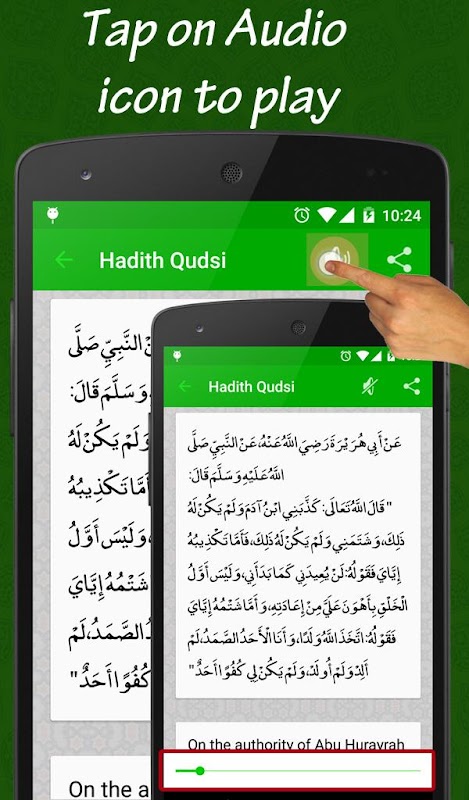 Tap on Audio
icon to play
10:24
Hadith Qudsi
عَنِ النَّبِيِّ صَلَّى
وَسَلَّمَ قَالَ:
وَلَمْ يَكُنْ لَهُ
أَمَّا تَكْذِيبُهُ
وَلَيْسَ أَوَّلُ
شَتْمُهُ إِيَّايَ
الصَّمَدُ، لَمْ
كُفُوًا أَحَدٌ"
On the a
Hadith Qudsi
عَنْ أَبِي هُرَيْرَةَ رَضِيَ اللَّهُ عَنْهُ، عَنِ النَّبِيِّ صَلَّى
اللَّهُ عَلَيْهِ وَسَلَّمَ قَالَ:
"قَالَ اللَّهُ تَعَالَى: كَذَّبَنِي ابْنُ آدَمَ وَلَمْ يَكُنْ لَهُ
ذَلِكَ، وَشَتَمَنِي وَلَمْ يَكُنْ لَهُ ذَلِكَ، فَأَمَّا تَكْذِيبُهُ
إِيَّايَ فَقَوْلُهُ: لَنْ يُعِيدَنِي كَمَا بَدَأَنِي، وَلَيْسَ أَوَّلُ
الْخَلْقِ بِأَهْوَنَ عَلَيَّ مِنْ إِعَادَتِهِ، وَأَمَّا شَتْمُهُ إِيَّايَ
فَقَوْلُهُ: اتَّخَذَ اللَّهُ وَلَدًا، وَأَنَا الْأَحَدُ الصَّمَدُ، لَمْ
أَلِدْ وَلَمْ أُولَدْ، وَلَمْ يَكُنْ لِي كُفُوًا أَحَدٌ"
On the authority of Abu Hurayrah